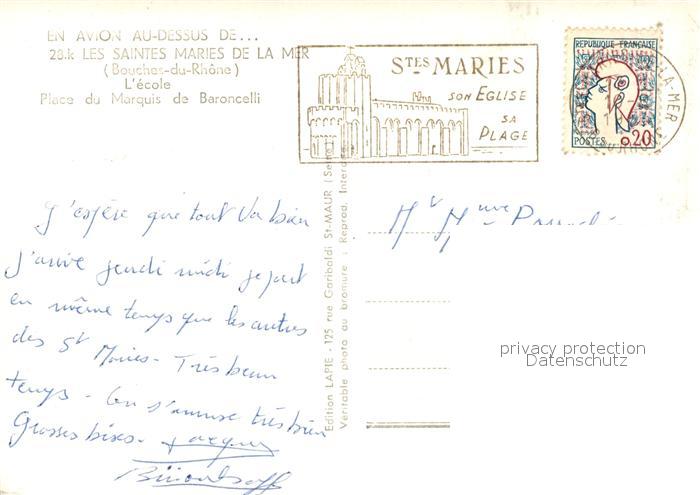 EN AVION AU-DESSUS DE...
28.k LES SAINTES MARIES DE LA MER
(Bouches-du-Rhône)
L'école
Place du Marquis de Baroncelli
STES MARIES
SON EGLISE
SA
PLAGE
REPUBLIQUE FRANÇAISE
0,20
POSTES
LA-MER
J'espère que tout va bien
J'arrive jeudi midi je part
en même temps que les autres
des St Maries - Très beau
temps - On s'amuse très bien
Grosses bises - Jacques
Mr Mme
Edition LAPIE - 125 rue Garibaldi St-MAUR (Seine)
Véritable photo au bromure : Reprod. Interdite
privacy protection
Datenschutz